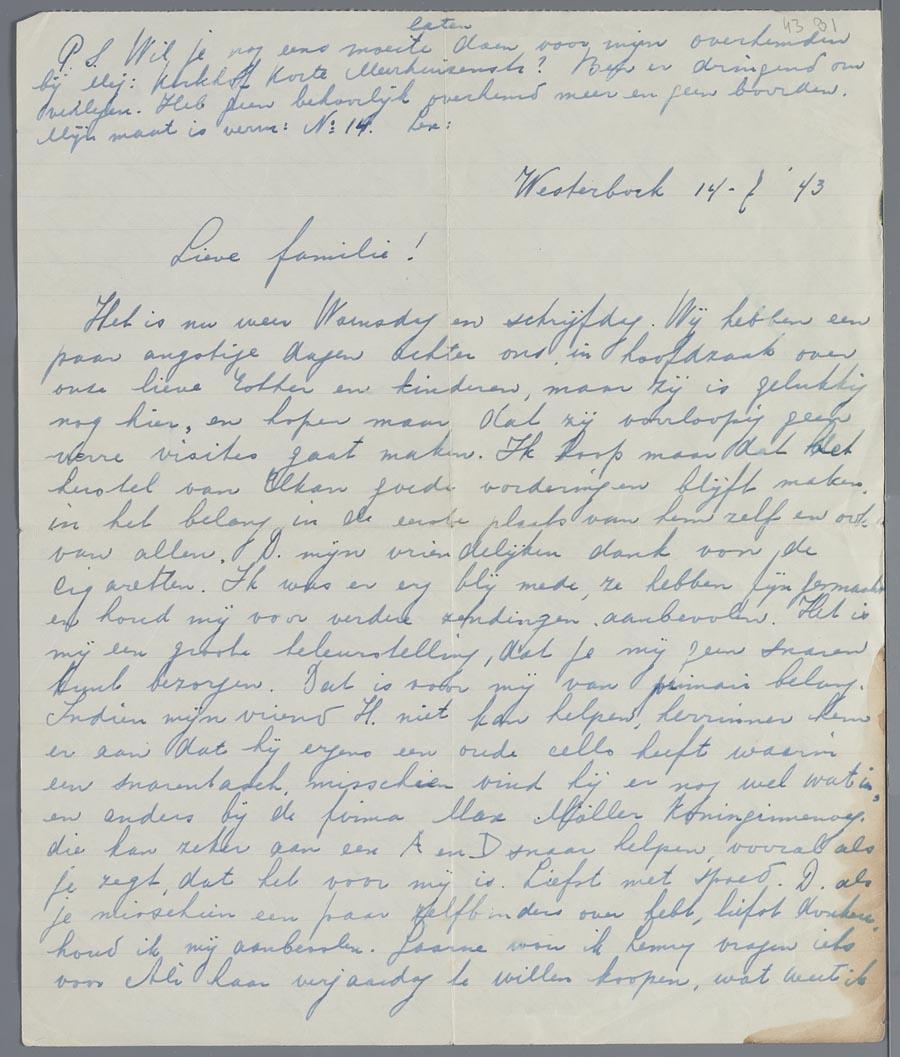 43 31
laten
P.S. Wil je nog eens moeite doen voor mijn overhemden
bij Mej: Kerkhof Korte Meerhuizenstr? Ben er dringend om
verlegen. Heb geen behoorlijk overhemd meer en geen boorden.
Mijn maat is verm: No: 14. Lex:
Westerbork 14- '43
Lieve familie!
Het is nu weer Woensdag en schrijfdag. Wij hebben een
paar angstige dagen achter ons, in hoofdzaak over
onze lieve en kinderen, maar zij is gelukkig
nog hier, en hopen maar dat zij voorloopig geen
verre visites gaat maken. Ik hoop maar dat het
herstel van Elkan goede vorderingen blijft maken,
in het belang in de eerste plaats van hem zelf en ook
van allen. D. mijn vriendelijken dank voor de
cigaretten. Ik was er erg blij mede, ze hebben fijn gesmaakt
en houd mij voor verdere zendingen aanbevolen. Het is
mij een groote teleurstelling, dat je mij geen snaren
kunt bezorgen. Dat is voor mij van primair belang.
Indien mijn vriend H. niet kan helpen, herrinner hem
er aan dat hij ergens een oude cello heeft waarin
een snarentasch, misschien vind hij er nog wel wat in,
en anders bij de firma Max Möller Koninginneweg,
die kan zeker aan een A en D snaar helpen, vooral als
je zegt, dat het voor mij is. Liefst met spoed. D. als
je misschien een paar zelfbinders over hebt, liefst donkere,
houd ik mij aanbevolen. Gaarne wou ik Henny vragen iets
voor Ali haar verjaardag te willen koopen, wat weet ik